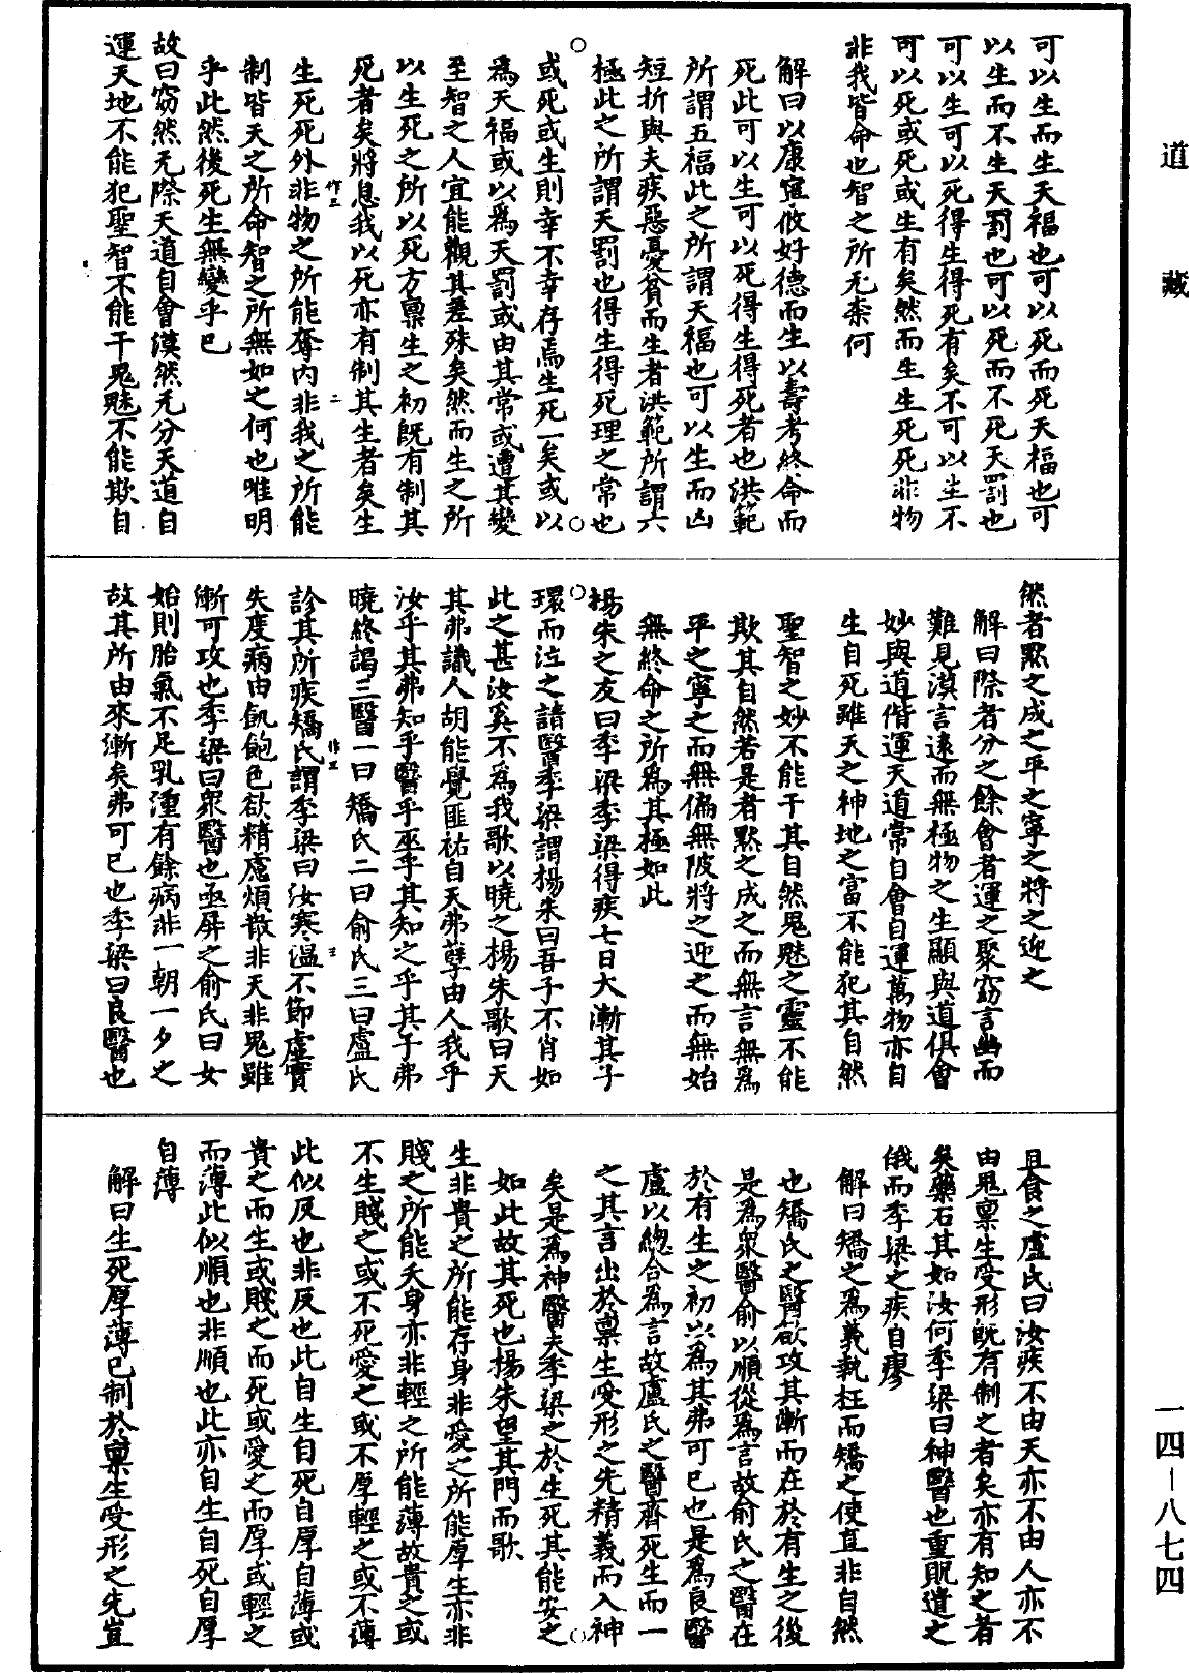 道藏
可以生而生天福也可以死而死天福也可
以生而不生天罰也可以死而不死天罰也
可以生可以死得生得死有矣不可以生不
可以死或死或生有矣然而生生死死非物
非我皆命也智之所无柰何
解曰以康寧攸好德而生以壽考終命而
死此可以生可以死得生得死者也洪範
所謂五福此之所謂天福也可以生而凶
短折與夫疾惡憂貧而生者洪範所謂六
極此之所謂天罰也得生得死理之常也
或死或生則幸不幸存焉生死一矣或以
爲天福或以爲天罰或由其常或遭其變
至智之人宜能觀其差殊矣然而生之所
以生死之所以死方稟生之初旣有制其
死者矣將息我以死亦有制其生者矣生
生死死外非物之所能奪內非我之所能
制皆天之所命智之所無如之何也唯明
乎此然後死生無變乎已
故曰窈然无際天道自會漠然无分天道自
運天地不能犯聖智不能干鬼魅不能欺自
然者默之成之平之寧之將之迎之
解曰際者分之餘會者運之聚窈言幽而
難見漠言遠而無極物之生顯與道俱會
妙與道偕運天道常自會自運萬物亦自
生自死雖天之神地之富不能犯其自然
聖智之妙不能干其自然鬼魅之靈不能
欺其自然若是者默之成之而無言無爲
平之寧之而無偏無陂將之迎之而無始
無終命之所爲其極如此
楊朱之友曰季梁季梁得疾七日大漸其子
環而泣之請醫季梁謂楊朱曰吾子不肖如
此之甚汝奚不爲我歌以曉之楊朱歌曰天
其弗識人胡能覺匪祐自天弗孽由人我乎
汝乎其弗知乎醫乎巫乎其知之乎其子弗
曉終謁三醫一曰矯氏二曰俞氏三曰盧氏
診其所疾矯氏謂季梁曰汝寒溫不節虛實
失度病由飢飽色欲精慮煩散非天非鬼雖
漸可攻也季梁曰眾醫也亟屏之俞氏曰女
始則胎氣不足乳湩有餘病非一朝一夕之
故其所由來漸矣弗可已也季梁曰良醫也
且食之盧氏曰汝疾不由天亦不由人亦不
由鬼稟生受形旣有制之者矣亦有知之者
矣藥石其如汝何季梁曰神醫也重貺遣之
俄而季梁之疾自瘳
解曰矯之爲義執枉而矯之使直非自然
也矯氏之醫欲攻其漸而在於有生之後
是爲眾醫俞以順從爲言故俞氏之醫在
於有生之初以爲其弗可已也是爲良醫
盧以總合爲言故盧氏之醫齊死生而一
之其言出於稟生受形之先精義而入神
矣是爲神醫夫季梁之於生死其能安之
如此故其死也楊朱望其門而歌
生非貴之所能存身非愛之所能厚生亦非
賤之所能夭身亦非輕之所能薄故貴之或
不生賤之或不死愛之或不厚輕之或不薄
此似反也非反也此自生自死自厚自薄或
貴之而生或賤之而死或愛之而厚或輕之
而薄此似順也非順也此亦自生自死自厚
自薄
解曰生死厚薄已制於稟生受形之先豈
一四－八七四